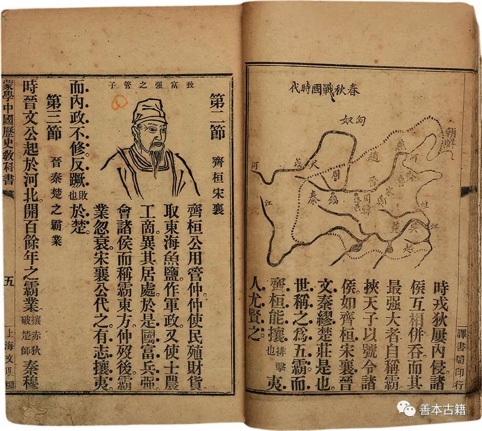 春秋戰國時代
匈奴
朝鮮
燕
趙
秦
楚
河
江
時戎狄屢內侵諸
侯互相併吞而其
最强大者自稱霸
挾天子以號令諸
侯如齊桓宋襄晉
文秦繆楚莊是也
世稱之爲五霸而
齊桓能攘也排擊夷
人尤賢之
譯書局印行
第二節 齊桓宋襄
致富强之管子
齊桓公用管仲仲使民殖財貨
取東海魚鹽作軍政又使士農
工商異其居處於是國富兵强
會諸侯而稱霸東方仲歿後霸
業忽衰宋襄公代之有志攘夷
而內政不修反蹶敗也於楚
第三節 晉秦楚之霸業
時晉文公起於河北開百餘年之霸業攘赤狄破楚師秦穆
蒙學中國歷史教科書
五
上海文明
善本古籍